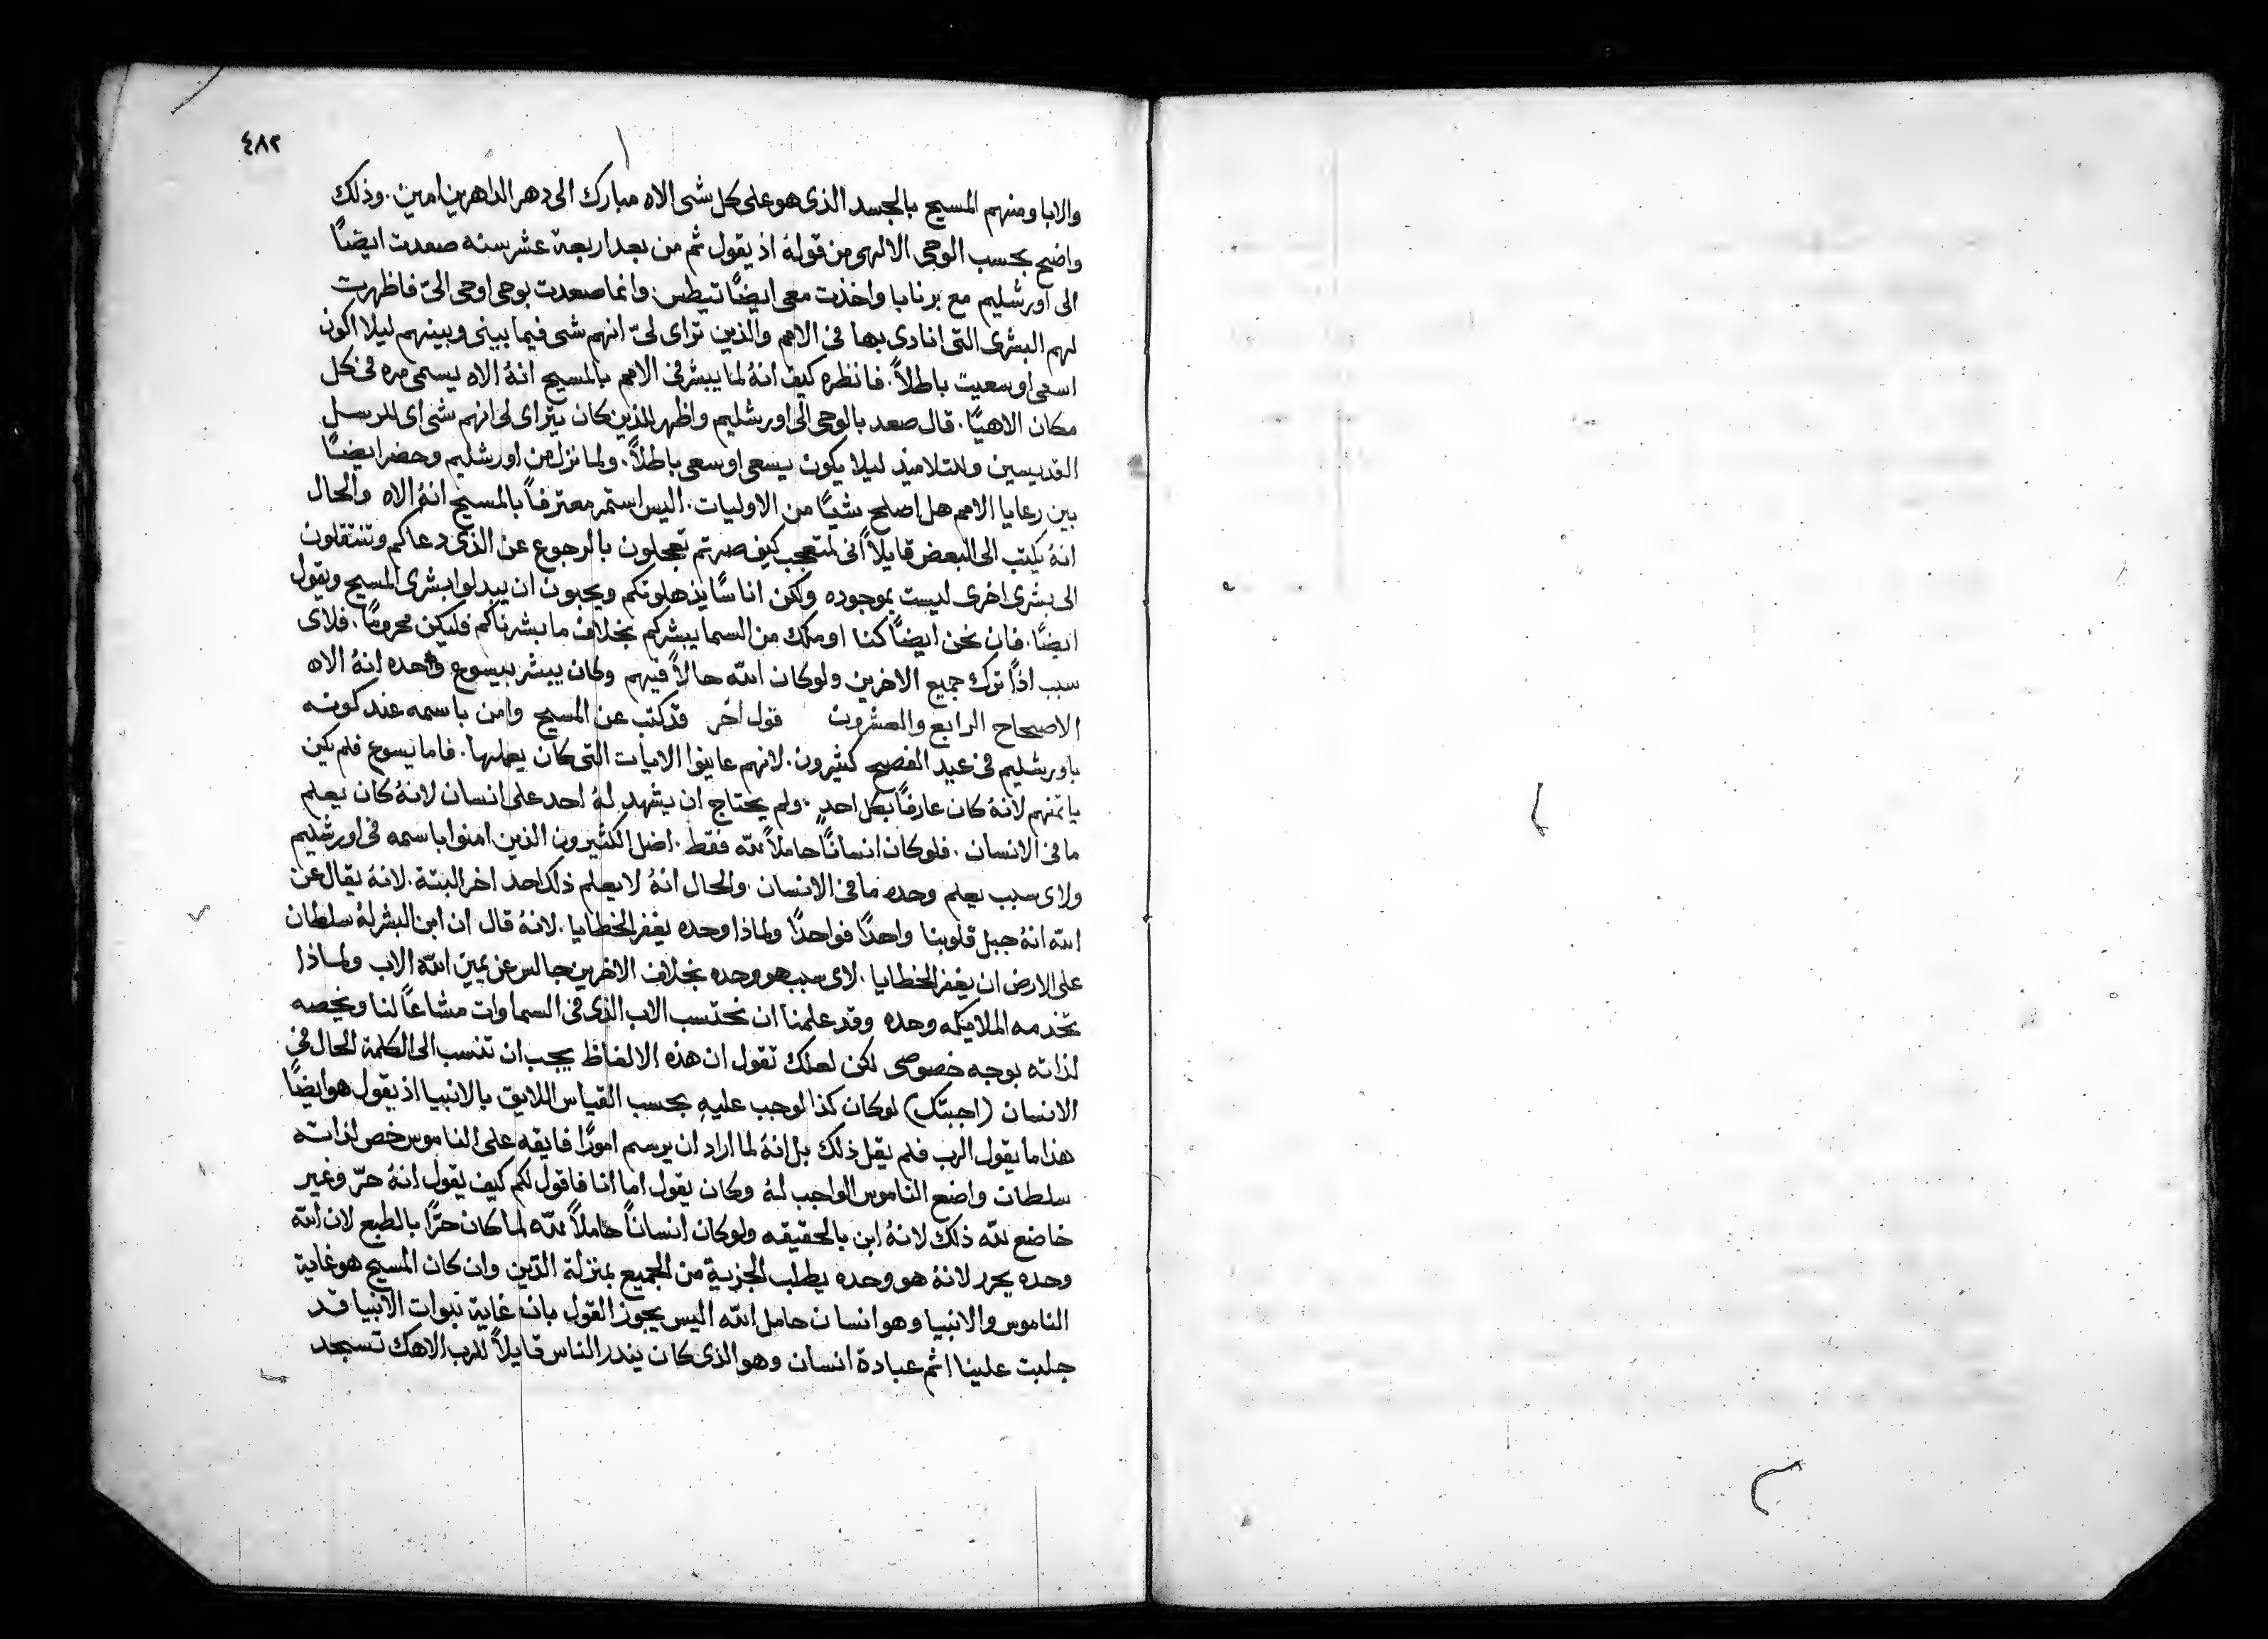 ٤٨٢
والابا ومنهم المسيح بالجسد الذى هو على كل شى الاه مبارك الى دهر الداهرين امين. وذلك
واضح بحسب الوحى الالهى من قوله اذ يقول ثم من بعد اربعة عشر سنه صعدت ايضًا
الى اورشليم مع برنابا واخذت معى ايضًا تيطس. وانما صعدت بوحى اوحى الىّ فاظهرت
لهم البشرى التى انادى بها فى الامم والذين تراى لىّ انهم شى فيما بينى وبينهم ليلا اكون
اسعى او سعيت باطلاً. فانظره كيف انهُ لما يبشر فى الامم بالمسيح انهُ الاه يسمى مره فى كل
مكان الاهيًا. قال صعد بالوحى الى اورشليم واظهر للذين كان يتراى لى انهم شى اى للرسل
القديسين وللتلاميذ ليلا يكون يسعى او سعى باطلاً. ولما نزل من اورشليم وحضر ايضًا
بين رعايا الامم هل اصلح شيًا من الاوليات. اليس استمر معترفاً بالمسيح انهُ الاه والحال
انهُ يكتب الى البعض قايلاً انى لمتعجب كيف صرتم تعجلون بالرجوع عن الذى دعاكم وتنتقلون
الى بشرى اخرى ليست بموجوده ولكن اناسًا يذهلونكم ويحبون ان يبدلوا بشرى المسيح ويقول
ايضًا. فان نحن ايضًا كنا او ملك من السما يبشركم بخلاف ما بشرناكم فليكن محرومًا. فلاى
سبب اذًا ترك جميع الاخرين ولو كان الله حالاً فيهم وكان يبشر بيسوع وحده انهُ الاه
الاصحاح الرابع والعشرون قول اخر قد كتب عن المسيح وامن باسمه عند كونه
باورشليم فى عيد الفصح كثيرون. لانهم عاينوا الايات التى كان يعملها. فاما يسوع فلم يكن
ياتمنهم لانهُ كان عارفًا بكل احدٍ. ولم يحتاج ان يشهد لهُ احد على انسان لانهُ كان يعلم
ما فى الانسان. فلو كان انسانًا حاملاً لله فقط. اضل الكثيرون الذين امنوا باسمه فى اورشليم
ولاى سبب يعلم وحده ما فى الانسان. والحال انهُ لا يعلم ذلك احد اخر البتة. لانهُ يقال عن
الله انهُ جبل قلوبنا واحدًا فواحدًا ولماذا وحده يغفر الخطايا. لانهُ قال ان ابن البشر لهُ سلطان
على الارض ان يغفر الخطايا. لاى سبب هو وحده بخلاف الاخرين جالس عن يمين الله الاب ولماذا
تخدمه الملايكه وحده وقد علمنا ان نحتسب الاب الذى فى السماوات مشاعًا لنا ويخصه
لذاته بوجه خصوصى لكن لعلك تقول ان هذه الالفاظ يجب ان تنسب الى الكلمة الحال فى
الانسان (اجبتك) لو كان كذا لوجب عليهِ بحسب القياس اللايق بالانبيا اذ يقول هو ايضًا
هذا ما يقول الرب فلم يقل ذلك بل انهُ لما اراد ان يرسم امورًا فايقه على الناموس خص لذاته
سلطان واضع الناموس الواجب لهُ وكان يقول اما انا فاقول لكم كيف يقول انهُ حرّ وغير
خاضع لله ذلك لانهُ ابن بالحقيقه ولو كان انساناً حاملاً لله لما كان حرًّا بالطبع لان الله
وحده يحرر لانهُ هو وحده يطلب الجزية من الجميع بمنزلة الدين وان كان المسيح هو غاية
الناموس والانبيا وهو انسان حامل الله اليس يجوز القول بان غاية نبوات الانبيا قد
جلبت علينا اثم عبادة انسان وهو الذى كان يندر الناس قايلاً للرب الاهك تسجد